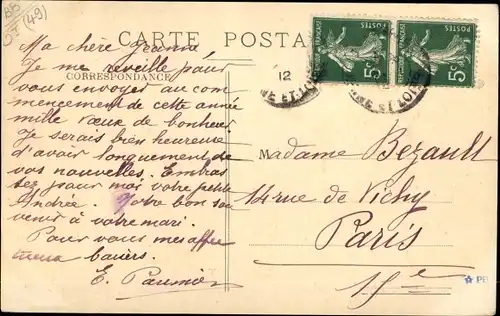 BB
CT (49)
CARTE POSTALE
CORRESPONDANCE
Ma chère Jeanne
Je me réveille pour
vous envoyer au com
mencement de cette année
mille vœux de bonheur
Je serais bien heureuse
d'avoir longuement de
vos nouvelles. Embras
sez pour moi votre petite
Andrée. Votre bon sou
venir à votre mari.
Pour vous mes affec
tueux baisers.
E. Paumier
12
NE ET LOIR
5c
5c
Madame Bezault
14 rue de Vichy
Paris
15e
PB